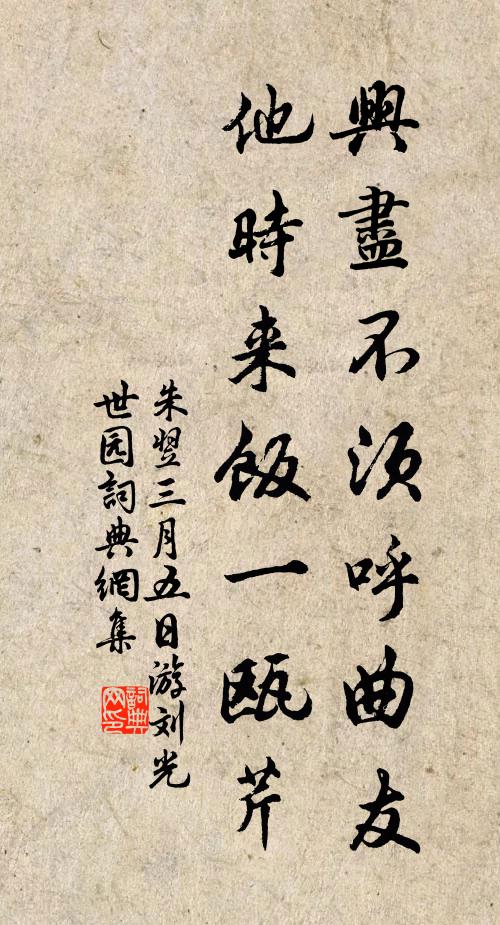 興盡不須呼曲友
他時来飯一瓯芹
朱翌三月五日游刘光
世园詞典網集
詞典
网印